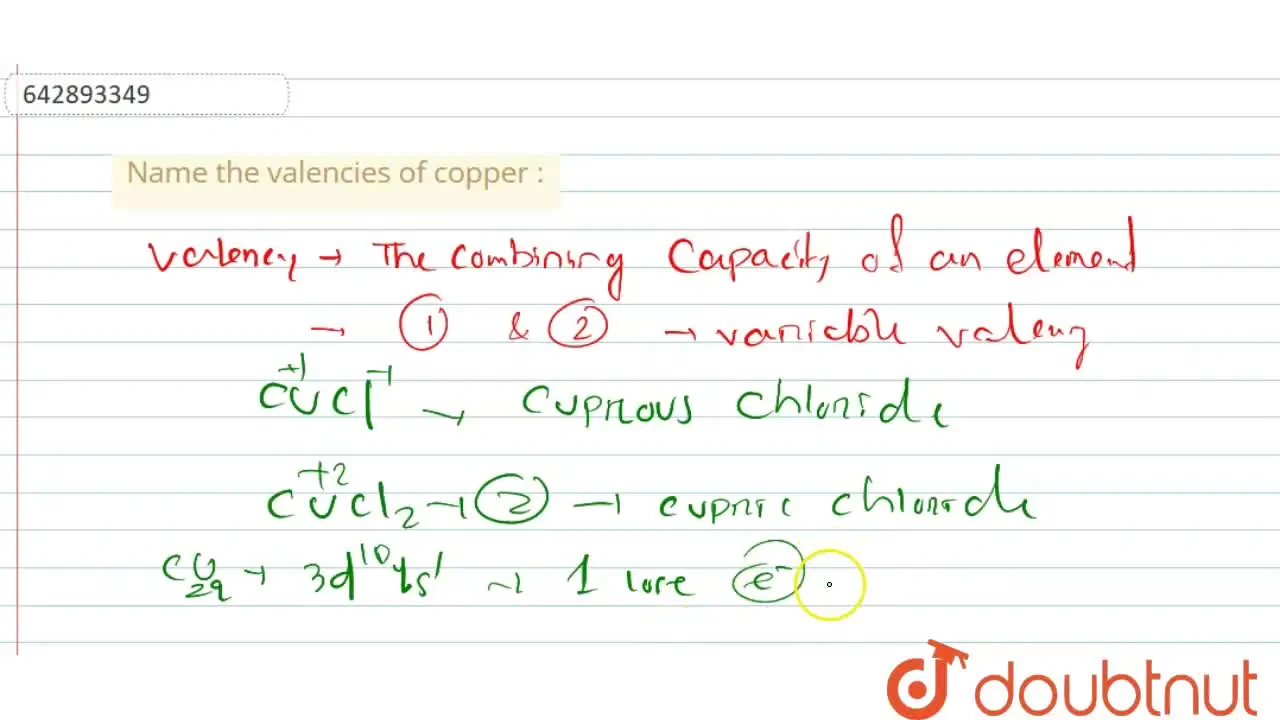 642893349
Name the valencies of copper :
Valency → The combining Capacity of an element
→ ① & ② → variable valency
Cu⁺¹Cl⁻¹ → Cuprous Chloride
Cu⁺²Cl₂ → ② → cupric chloride
Cu₂₉ → 3d¹⁰4s¹ → 1 lose e⁻
doubtnut